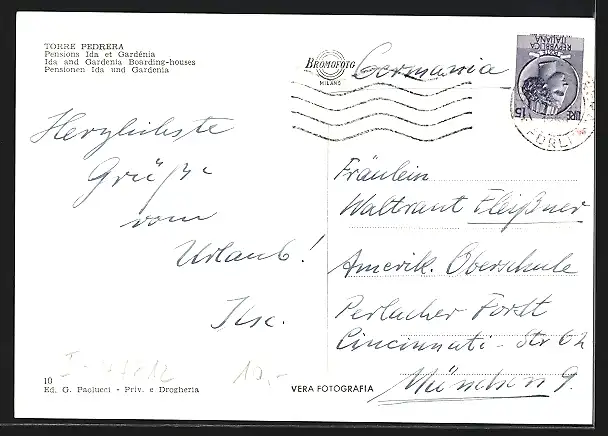 TORRE PEDRERA
Pensions Ida et Gardénia
Ida and Gardenia Boarding-houses
Pensionen Ida und Gardenia
BROMOFOTO
MILANO
Germania
REPVBBLICA
ITALIANA
LIRE 15
FORLI
Herzlichste
Grüße
vom
Urlaub!
Ilse.
Fräulein
Waltraut Fleißner
Amerik. Oberschule
Perlacher Forst
Cincinnati-Str 62
München 9.
10,-
10
Ed. G. Paolucci - Priv. e Drogheria
VERA FOTOGRAFIA